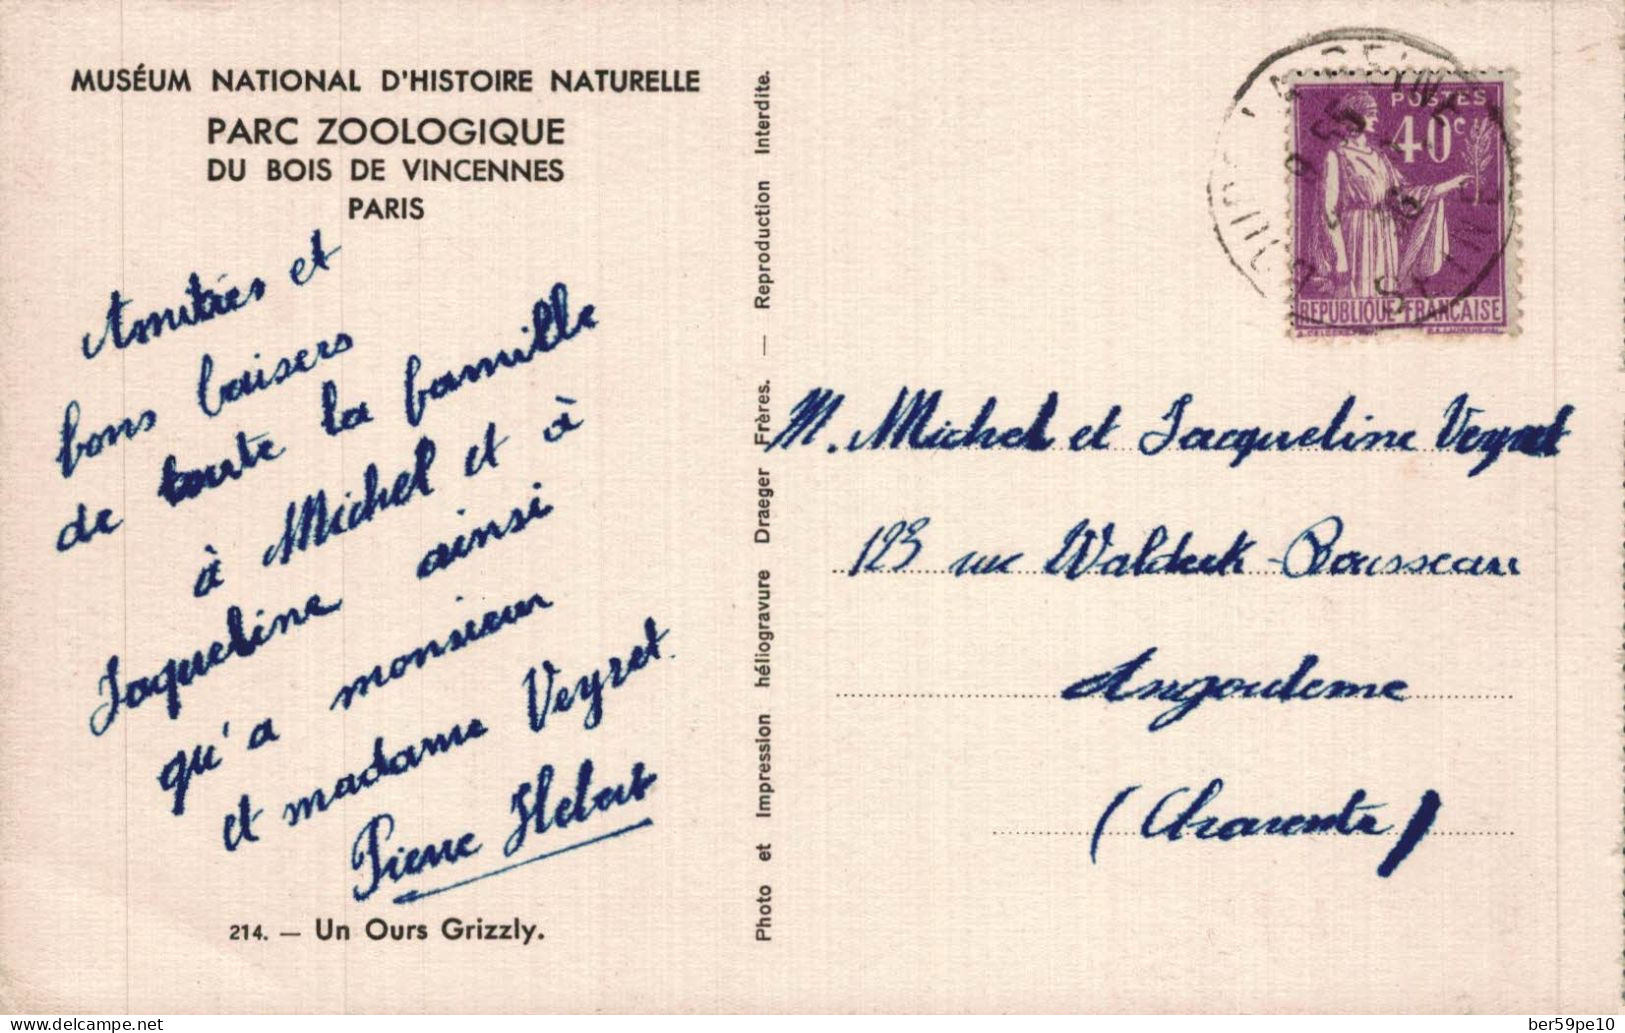 MUSÉUM NATIONAL D'HISTOIRE NATURELLE
PARC ZOOLOGIQUE
DU BOIS DE VINCENNES
PARIS
Amitiés et
bons baisers
de toute la famille
à Michel et à
Jaqueline ainsi
qu'a monsieur
et madame Veyret.
Pierre Hebert
214. — Un Ours Grizzly.
Photo et Impression héliogravure Draeger Frères. — Reproduction Interdite.
POSTES
40c
REPUBLIQUE FRANÇAISE
LA REINE
SEINE
M. Michel et Jacqueline Veyret
123 rue Waldeck-Rousseau
Angouleme
(Charente)
delcampe.net
ber59pe10